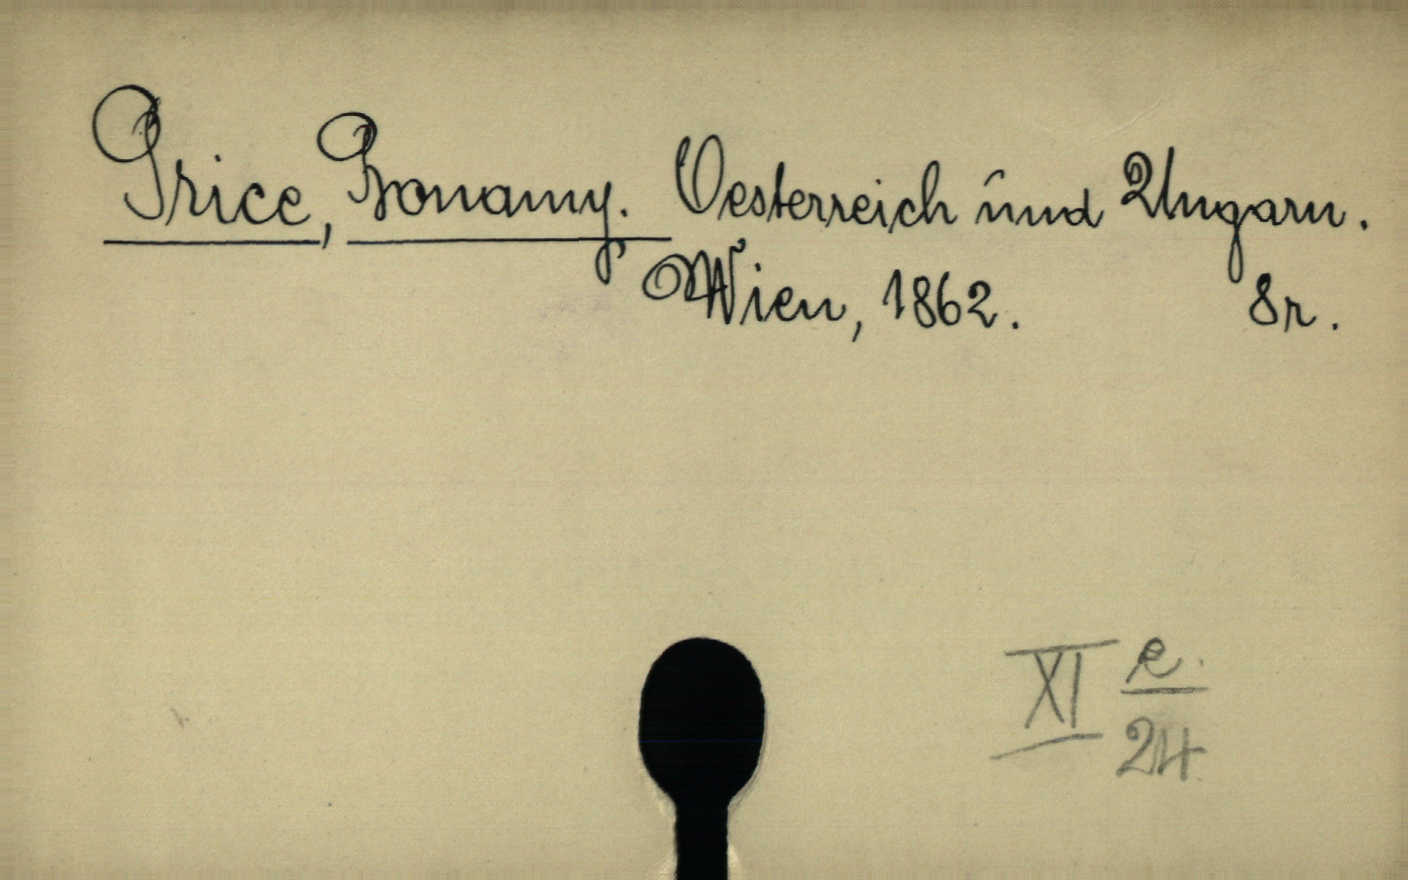 Price, Bonamy. Oesterreich und Ungarn.
Wien, 1862. 8r.
XI e.
24